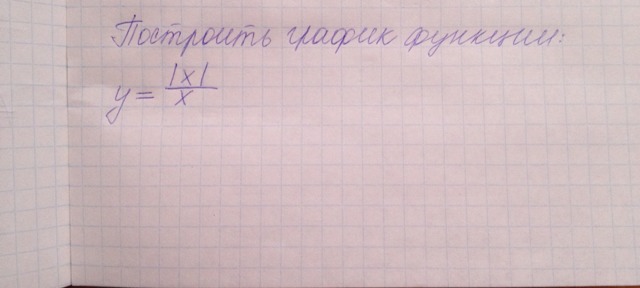 Построить график функции:
y = |x|/x